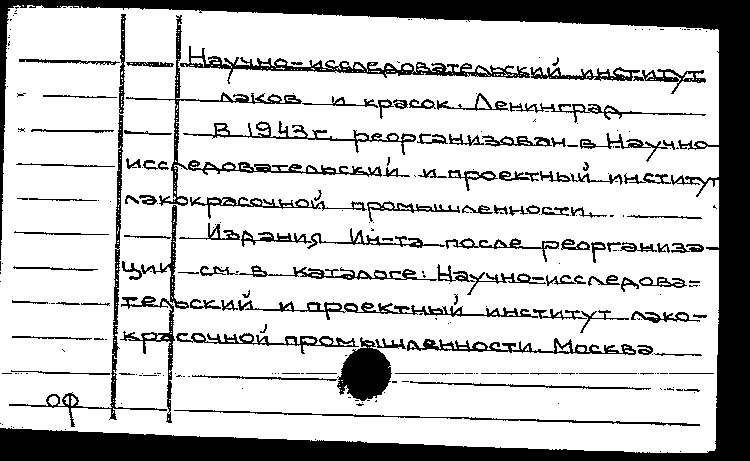 Научно-исследовательский институт
лаков и красок. Ленинград
В 1943 г. реорганизован в Научно-
исследовательский и проектный институт
лакокрасочной промышленности.
Издания Ин-та после реорганиза-
ции см. в каталоге: Научно-исследова-
тельский и проектный институт лако-
красочной промышленности. Москва
ОФ